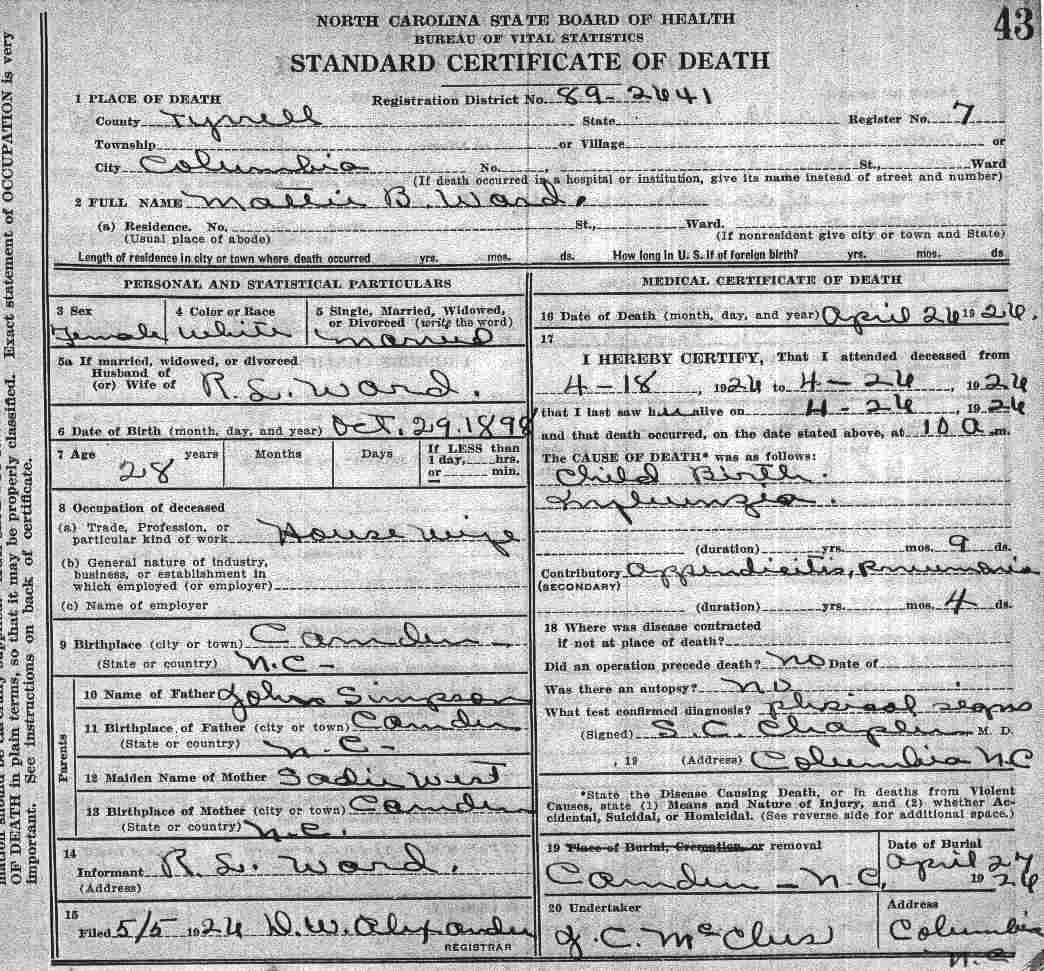 43
NORTH CAROLINA STATE BOARD OF HEALTH
BUREAU OF VITAL STATISTICS
STANDARD CERTIFICATE OF DEATH
1 PLACE OF DEATH Registration District No. 89-2641
County Tyrrell State Register No. 7
Township or Village or
City Columbia No. , St., Ward
(If death occurred in a hospital or institution, give its name instead of street and number)
2 FULL NAME Mattie B. Ward.
(a) Residence. No. St., Ward.
(Usual place of abode) (If nonresident give city or town and State)
Length of residence in city or town where death occurred yrs. mos. ds. How long in U. S. if of foreign birth? yrs. mos. ds.
PERSONAL AND STATISTICAL PARTICULARS
3 Sex 4 Color or Race 5 Single, Married, Widowed,
or Divorced (write the word)
Female White Married
5a If married, widowed, or divorced
Husband of
(or) Wife of R. L. Ward.
6 Date of Birth (month, day, and year) Oct. 29. 1898
7 Age years Months Days If LESS than
1 day, hrs.
or min.
28
8 Occupation of deceased
(a) Trade, Profession, or
particular kind of work House wife
(b) General nature of industry,
business, or establishment in
which employed (or employer)
(c) Name of employer
9 Birthplace (city or town) Camden
(State or country) N.C.
Parents
10 Name of Father John Simpson
11 Birthplace of Father (city or town) Camden
(State or country) N.C.
12 Maiden Name of Mother Sadie West
13 Birthplace of Mother (city or town) Camden
(State or country) N.C.
14
Informant R. L. Ward.
(Address)
15
Filed 5/5 1926 D.W. Alexander
REGISTRAR
MEDICAL CERTIFICATE OF DEATH
16 Date of Death (month, day, and year) April 26 1926.
17
I HEREBY CERTIFY, That I attended deceased from
4-18, 1926 to 4-26, 1926
that I last saw her alive on 4-26, 1926
and that death occurred, on the date stated above, at 10 a.m.
The CAUSE OF DEATH* was as follows:
Child Birth.
Influenzia.
(duration) yrs. mos. 9 ds.
Contributory Appendicitis, Pneumonia
(SECONDARY)
(duration) yrs. mos. 4 ds.
18 Where was disease contracted
if not at place of death?
Did an operation precede death? no Date of
Was there an autopsy? no
What test confirmed diagnosis? phisical signs
(Signed) S. C. Chaplin M. D.
, 19 (Address) Columbia N.C
*State the Disease Causing Death, or in deaths from Violent
Causes, state (1) Means and Nature of Injury, and (2) whether Ac-
cidental, Suicidal, or Homicidal. (See reverse side for additional space.)
19 Place of Burial, Cremation, or removal Date of Burial
Camden - N.C. April 27 1926
20 Undertaker Address
J. C. McClus Columbia
N.C
OF DEATH in plain terms, so that it may be properly classified. Exact statement of OCCUPATION is very
important. See instructions on back of certificate.